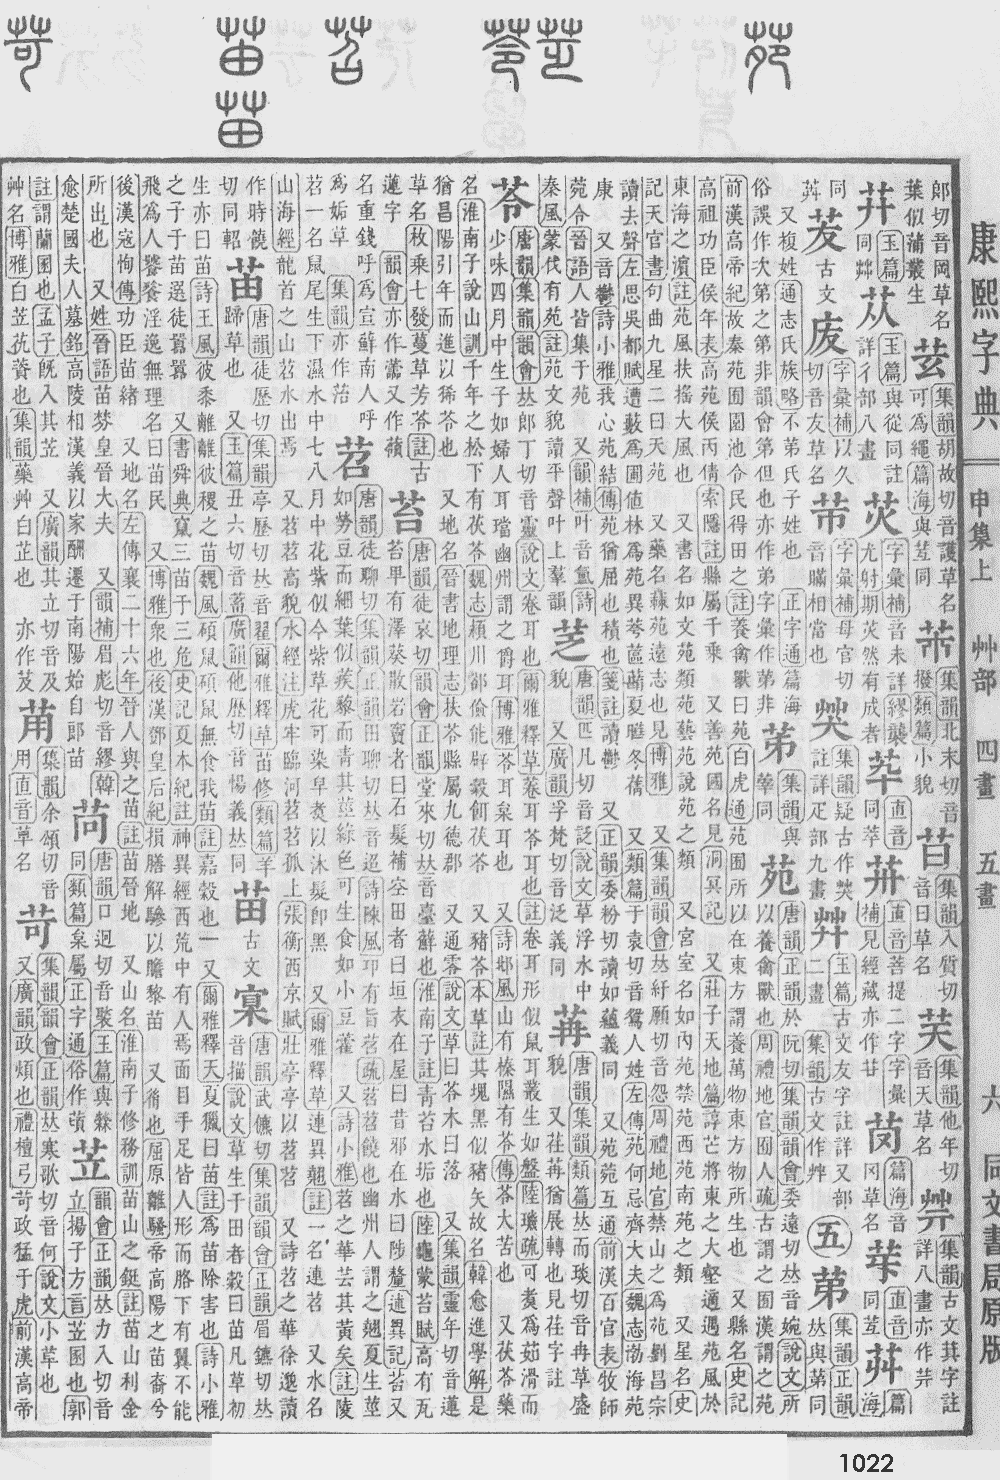 康熙字典 申集上 艸部 四畫 五畫 六 同文書局原版
郞切音岡草名
葉似蒲叢生
集韻胡故切音護草名
可爲繩篇海與苙同
集韻北末切音
撥類篇小貌
苩 集韻入質切
音日草名
芺 集韻他年切
音天草名
集韻古文萁字註
詳八畫亦作芉
玉篇
同艸
苁 玉篇與從同註
詳彳部八畫
字彙補音未詳繆襲
尤射期苂然有成者
直音
同萃
直音菩提二字字彙
補見經藏亦作廿
篇海音
冈草名
茇 古文
字彙補以久
切音友草名
芇 字彙補母官切
音瞞相當也
集韻疑古作樊
註詳疋部九畫
玉篇古文友字註詳又部
二畫 集韻古文作艸
五
苐 集韻正韻
𠀤與苐同
又複姓通志氏族略不第氏子姓也 正字通篇海
俗誤作次第之第非韻會第但也亦作弟字彙作第非
苑 唐韻正韻於阮切集韻韻會委遠切𠀤音婉說文所
以養禽獸也周禮地官囿人疏古謂之囿漢謂之苑
前漢高帝紀故秦苑囿園池令民得田之註養禽獸曰苑白虎通苑囿所以在東方謂養萬物東方物所生也 又縣名史記
高祖功臣侯年表高苑侯丙倩索隱註縣屬千乘 又善苑國名見洞冥記 又莊子天地篇諄芒將東之大壑適遇苑風於
東海之濵註苑風扶搖大風也 又書名如文苑類苑藝苑說苑之類 又宮室名如內苑禁苑西苑南苑之類 又星名史
記天官書句曲九星二曰天苑 又藥名蘇苑遠志也見博雅 又集韻韻會𠀤紆願切音怨周禮地官禁山之爲苑劉昌宗
讀去聲左思吳都賦遭藪爲圃値林爲苑異荂蓲蘛夏曄冬蒨 又類篇于袁切音鴛人姓左傳苑何忌齊大夫魏志渤海苑
康 又音鬱詩小雅我心苑結傳苑猶屈也積也箋註讀鬱 又正韻委粉切讀如蘊義同 又苑苑互通前漢百官表牧師
菀令晉語人皆集于苑 又韻補叶音氳詩
秦風蒙伐有苑註苑文貌讀平聲叶上羣韻
芝 唐韻匹凡切音䒦說文草浮水中
貌 又廣韻孚梵切音泛義同
苒 唐韻集韻類篇𠀤而琰切音冉草盛
貌 又苒苒猶展轉也見荏字註
苓 唐韻集韻韻會𠀤郞丁切音靈說文卷耳也爾雅釋草菤耳苓耳也註卷耳形似鼠耳叢生如盤陸璣疏可煮爲茹滑而
少味四月中生子如婦人耳璫幽州謂之爵耳博雅苓耳枲耳也 又詩邶風山有榛隰有苓傳苓大苦也 又茯苓藥
名淮南子說山訓千年之松下有茯苓魏志潁川郤儉能辟穀餌茯苓 又豬苓本草註其塊黑似豬矢故名韓愈進學解是
猶昌陽引年而進以豨苓也 又地名晉書地理志扶苓縣屬九德郡 又通零說文草曰苓木曰落 又集韻靈年切音蓮
草名枚乘七發蔓草芳苓註古
蓮字 韻會亦作蘦又作蘋
苔 唐韻徒哀切韻會正韻堂來切𠀤音臺蘚也淮南子註靑苔水垢也陸龜蒙苔賦高有瓦
苔𤰞有澤葵散若窮者曰石髮補空田者曰垣衣在屋曰昔邪在水曰陟釐述異記苔又
名重錢呼爲宣蘚南人呼
爲垢草 集韻亦作治
苕 唐韻徒聊切集韻正韻田聊切𠀤音迢詩陳風卬有旨苕疏苕饒也幽州人謂之翹夏生莖
如勞豆而細葉似蒺藜而靑其莖綠色可生食如小豆藿 又詩小雅苕之華芸其黃矣註陵
苕一名鼠尾生下濕水中七八月中花紫似今紫草花可染皁煮以沐髮卽黑 又爾雅釋草連異翹註一名連苕 又水名
山海經龍首之山苕水出焉 又苕苕高貌水經注虎牢臨河苕苕孤上張衡西京賦壯亭亭以苕苕 又詩苕之華徐邈讀
作時饒
切同軺
苗 唐韻徒歷切集韻亭歷切𠀤音翟爾雅釋草苗蓨類篇羊
蹄草也 又玉篇丑六切音蓄廣韻他歷切音惕義𠀤同
苗 古文
唐韻武儦切集韻韻會正韻眉鑣切𠀤
音描說文草生于田者穀曰苗凡草初
生亦曰苗詩王風彼黍離離彼稷之苗魏風碩鼠碩鼠無食我苗註嘉穀也一 又爾雅釋天夏獵曰苗註爲苗除害也詩小雅
之子于苗選徒囂囂 又書舜典竄三苗于三危史記夏本紀註神異經西荒中有人焉面目手足皆人形而胳下有翼不能
飛爲人饕餮淫逸無理名曰苗民 又博雅衆也後漢鄧皇后紀損膳解驂以贍黎苗 又裔也屈原離騷帝高陽之苗裔兮
後漢寇恂傳功臣苗緖 又地名左傳襄二十六年晉人與之苗註苗晉地 又山名淮南子修務訓苗山之鋌註苗山利金
所出也 又姓晉語苗棼皇晉大夫 又韻補眉彪切音繆韓
愈楚國夫人墓銘高陵相漢義以家酬遷于南陽始自郞苗
苘 唐韻口迥切音褧玉篇與檾
同類篇枲屬正字通俗作䔛
苙 韻會正韻𠀤力入切音
立揚子方言苙圂也郭
註謂蘭圂也孟子旣入其苙 又廣韻其立切音及又
艸名博雅白苙芁䔰也集韻藥艸白芷也 亦作芨
苚 集韻余頌切音
用直音草名
苛 集韻韻會正韻𠀤寒歌切音何說文小草也
又廣韻政煩也禮檀弓苛政猛于虎前漢高帝
1022